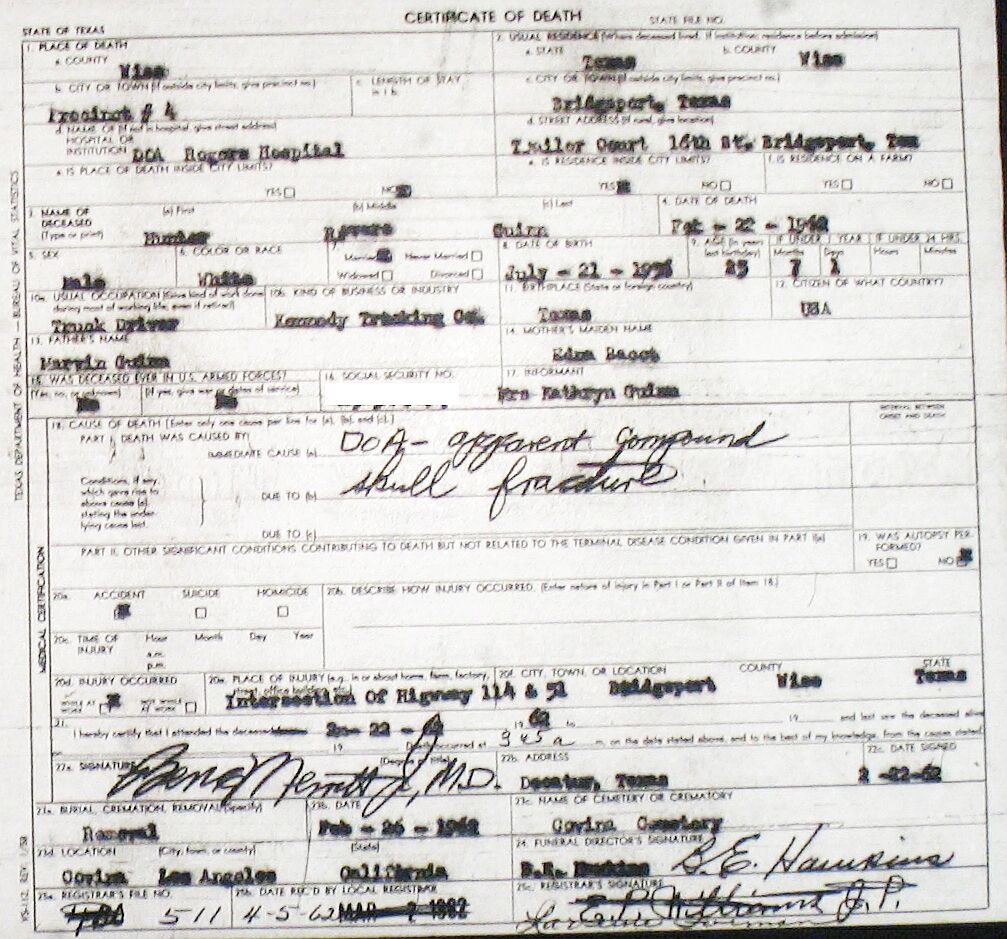 CERTIFICATE OF DEATH
STATE OF TEXAS
STATE FILE NO.
1. PLACE OF DEATH
2. USUAL RESIDENCE (Where deceased lived. If institution; residence before admission)
a. COUNTY
Wise
a. STATE
Texas
b. COUNTY
Wise
b. CITY OR TOWN (If outside city limits, give precinct no.)
Precinct # 4
c. LENGTH OF STAY in 1b
c. CITY OR TOWN (If outside city limits, give precinct no.)
Bridgeport, Texas
d. NAME OF (If not in hospital, give street address)
HOSPITAL OR
INSTITUTION
DOA Rogers Hospital
d. STREET ADDRESS (If rural, give location)
Trailor Court 16th St. Bridgeport, Tex
e. IS PLACE OF DEATH INSIDE CITY LIMITS?
YES NO
e. IS RESIDENCE INSIDE CITY LIMITS?
YES NO
f. IS RESIDENCE ON A FARM?
YES NO
3. NAME OF DECEASED
(Type or print)
(a) First
Hunter
(b) Middle
(c) Last
Guinn
4. DATE OF DEATH
- 22 - 1962
5. SEX
Male
6. COLOR OR RACE
White
Married Never Married
Widowed Divorced
8. DATE OF BIRTH
July - 21 - 1936
9. AGE (In years last birthday)
25
IF UNDER 1 YEAR
Months Days
7 1
IF UNDER 24 HRS.
Hours Minutes
10a. USUAL OCCUPATION (Give kind of work done during most of working life, even if retired)
Truck Driver
10b. KIND OF BUSINESS OR INDUSTRY
Kennedy Trucking Co.
11. BIRTHPLACE (State or foreign country)
Texas
12. CITIZEN OF WHAT COUNTRY?
USA
13. FATHER'S NAME
Marvin Guinn
14. MOTHER'S MAIDEN NAME
Edna
15. WAS DECEASED EVER IN U.S. ARMED FORCES?
(Yes, no, or unknown) (If yes, give war or dates of service)
No No
16. SOCIAL SECURITY NO.
17. INFORMANT
Mrs Kathryn Guinn
18. CAUSE OF DEATH (Enter only one cause per line for (a), (b), and (c).)
INTERVAL BETWEEN ONSET AND DEATH
PART I. DEATH WAS CAUSED BY:
IMMEDIATE CAUSE (a)
DOA - apparent compound
skull fracture
Conditions, if any,
which gave rise to
above cause (a),
stating the under-
lying cause last.
DUE TO (b)
DUE TO (c)
PART II. OTHER SIGNIFICANT CONDITIONS CONTRIBUTING TO DEATH BUT NOT RELATED TO THE TERMINAL DISEASE CONDITION GIVEN IN PART I(a)
19. WAS AUTOPSY PERFORMED?
YES NO
MEDICAL CERTIFICATION
20a. ACCIDENT SUICIDE HOMICIDE
20b. DESCRIBE HOW INJURY OCCURRED. (Enter nature of injury in Part I or Part II of item 18.)
20c. TIME OF INJURY
Hour Month Day Year
a.m.
p.m.
20d. INJURY OCCURRED
WHILE AT WORK NOT WHILE AT WORK
20e. PLACE OF INJURY (e.g., in or about home, farm, factory, street, office building, etc.)
Intersection Of Higway 114 & 51
20f. CITY, TOWN, OR LOCATION
Bridgeport
COUNTY
Wise
STATE
Texas
21. I hereby certify that I attended the deceased
22 -
1962 to 19 and last saw the deceased alive
on 19 Death occurred at 3 45 a m. on the date stated above, and to the best of my knowledge, from the causes stated.
22a. SIGNATURE
(Degree or title)
Merritt Jr, M.D.
22b. ADDRESS
Decatur, Texas
22c. DATE SIGNED
2 -22-62
23a. BURIAL, CREMATION, REMOVAL (Specify)
Removal
23b. DATE
Feb - 26 - 1962
23c. NAME OF CEMETERY OR CREMATORY
Covina Cemetery
23d. LOCATION (City, town, or county) (State)
Covina Los Angeles California
24. FUNERAL DIRECTOR'S SIGNATURE
B.E. Hawkins
B.E. Hawkins
25a. REGISTRAR'S FILE NO.
511
25b. DATE REC'D BY LOCAL REGISTRAR
4-5-62 MAR 7 1962
25c. REGISTRAR'S SIGNATURE
E.P. Williams J.P.
TEXAS DEPARTMENT OF HEALTH — BUREAU OF VITAL STATISTICS
VS-112, REV. 1/58